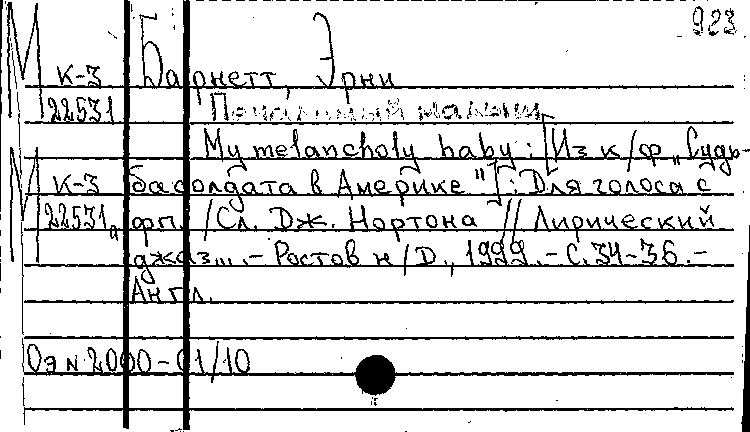 923
М К-3 Барнетт, Эрни
22531 Печальный малыш
My melancholy baby: [Из к/ф „Судь-
М К-3 ба солдата в Америке"]: Для голоса с
22531а фп. / Сл. Дж. Нортона // Лирический
джаз... - Ростов н/Д., 1999. - С. 34-36. -
Англ.
Оэ N 2000-01/10